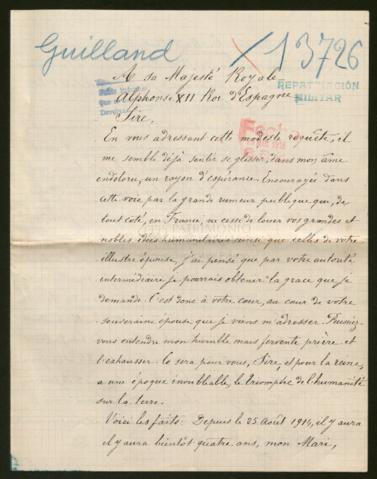 Guilland
13726
A sa Majesté Royale
REPATRIACIÓN
MILITAR
Alphonse XII Roi d'Espagne
Sire,
En vous adressant cette modeste requête, il
me semble déjà sentir se glisser, dans mon âme
endolorie, un rayon d'espérance. Encouragée dans
cette voie par la grande rumeur publique qui, de
tout côté, en France, ne cesse de louer vos grandes et
nobles idées humanitaires ainsi que celles de votre
illustre épouse, j'ai pensé que par votre autorité
intermédiaire je pourrais obtenir la grace que je
demande. C'est donc à votre cœur, au cœur de votre
souveraine épouse que je viens m'adresser. Puissiez-
vous entendre mon humble mais fervente prière et
l'exhausser. Ce sera pour vous, Sire, et pour la reine,
a une époque inoubliable, le triomphe de l'humanité
sur la terre.
Voici les faits: Depuis le 25 Août 1914, il y aura
il y aura bientôt quatre ans, mon Mari,